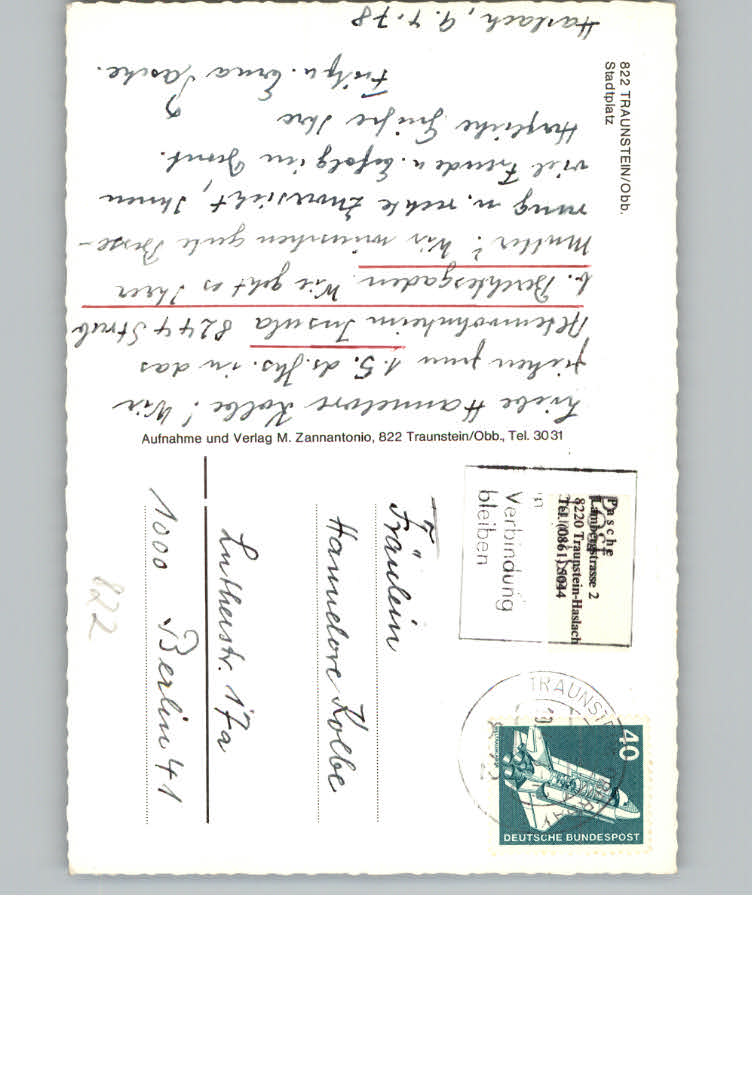 822 TRAUNSTEIN/Obb.
Stadtplatz
Haslach, 9.4.78
Liebe Hannelore Kolbe! Wir
ziehen zum 1.5. ds. Jhs. in das
Altenwohnheim Insula 8244 Strub
b. Berchtesgaden. Wie geht es Ihrer
Mutter? Wir wünschen gute Besse-
rung u. rechte Zuversicht, Ihnen
viel Freude u. Erfolg im Beruf.
Herzliche Grüße Ihre
Fritz u. Erna Pasche.
Aufnahme und Verlag M. Zannantonio, 822 Traunstein/Obb., Tel. 3031
Pasche
Lambergstrasse 2
8220 Traunstein-Haslach
Tel. (0861) 5044
Post
in
Verbindung
bleiben
TRAUNST
40
DEUTSCHE BUNDESPOST
Fräulein
Hannelore Kolbe
Lutherstr. 17a
1000 Berlin 41
822